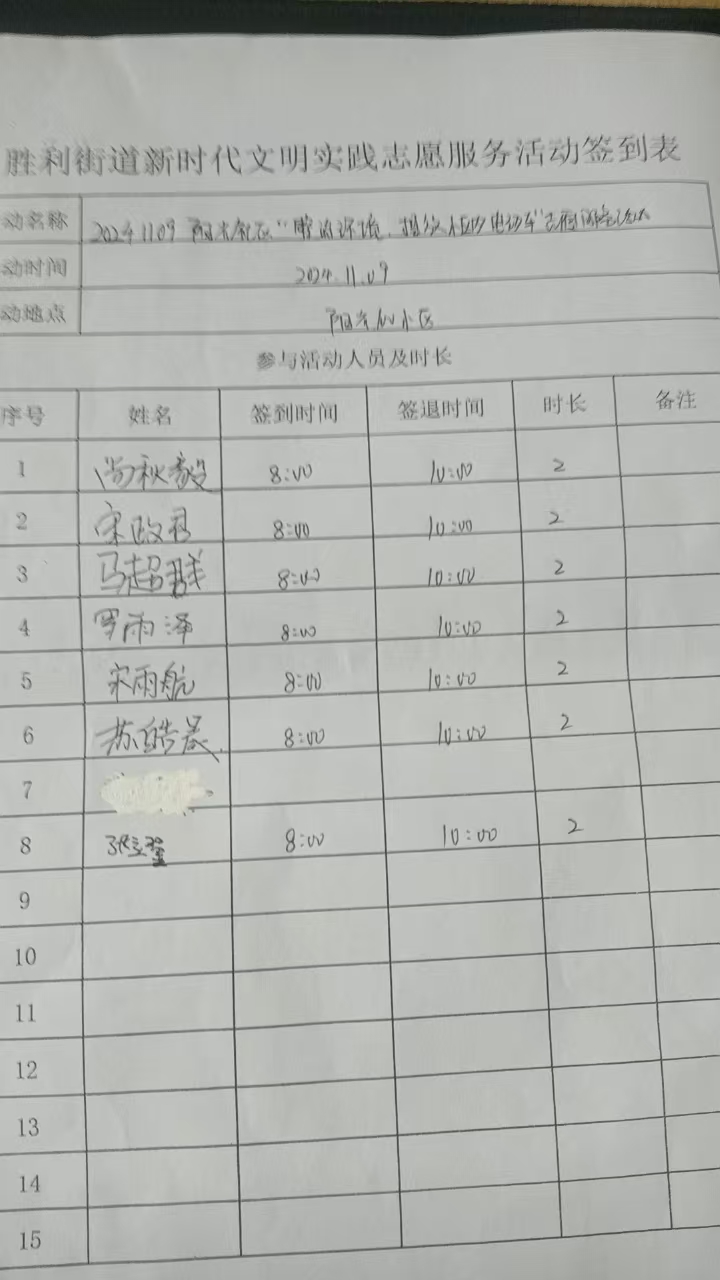 胜利街道新时代文明实践志愿服务活动签到表
动名称 20241109 阳光
动时间 2024.11.09
动地点 阳光 小区
参与活动人员及时长
序号 姓名 签到时间 签退时间 时长 备注
1 尚秋毅 8:00 10:00 2
2 宋政君 8:00 10:00 2
3 马超群 8:00 10:00 2
4 罗雨泽 8:00 10:00 2
5 宋雨航 8:00 10:00 2
6 苏皓晟 8:00 10:00 2
7
8 8:00 10:00 2
9
10
11
12
13
14
15